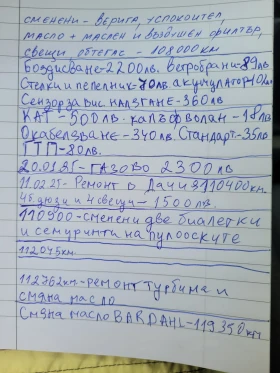 сменени - верига, успокоител,
масло + маслен и въздушен филтър,
свещи, обтегас - 108,000 км
Боядисване-2200лв. ветробрани-89лв
Стелки и пепелник-70лв акумулатор-102лв
Сензор за вис налягане-360лв
КАТ-500лв. калъф волан-18лв
Окабеляване-340лв. Стандарт-35лв.
ГТП-80лв.
20.01.25г-газово 2300лв
11.02.25-Ремонт в Дачия 110400км.
4бр дюзи и 4 свещи-1500лв.
110900-сменени две биалетки
и семеринги на полуоските
112045км.
112762км-ремонт турбина и
смяна масло
Смяна масло BARDAHL-119350км